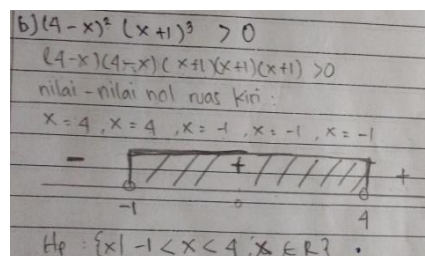 b) (4-x)² (x+1)³ > 0
(4-x)(4-x)(x+1)(x+1)(x+1) > 0
nilai-nilai nol ruas kiri :
x = 4, x = 4, x = -1, x = -1, x = -1
- + +
-1 0 4
Hp : {x| -1 < x < 4, x ∈ R}